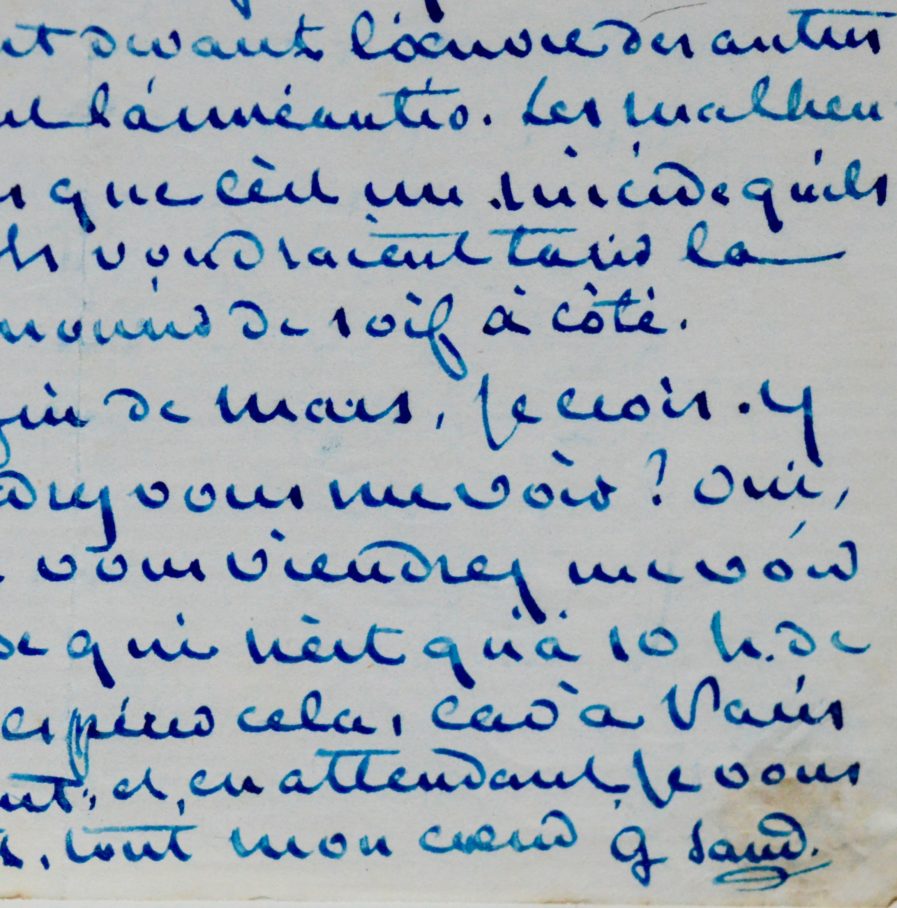 nt devant l'œuvre des autres
l'anéantir. Les malheu
s que c'est un suicide qu'ils
ls voudraient tarir la
mourir de soif à côté.
fin de mars, je crois. Y
drez vous me voir? Oui,
vous viendrez me voir
de qui n'est qu'à 10 h. de
espérer cela, car à Paris
nt, et, en attendant, je vous
tout mon cœur G Sand.